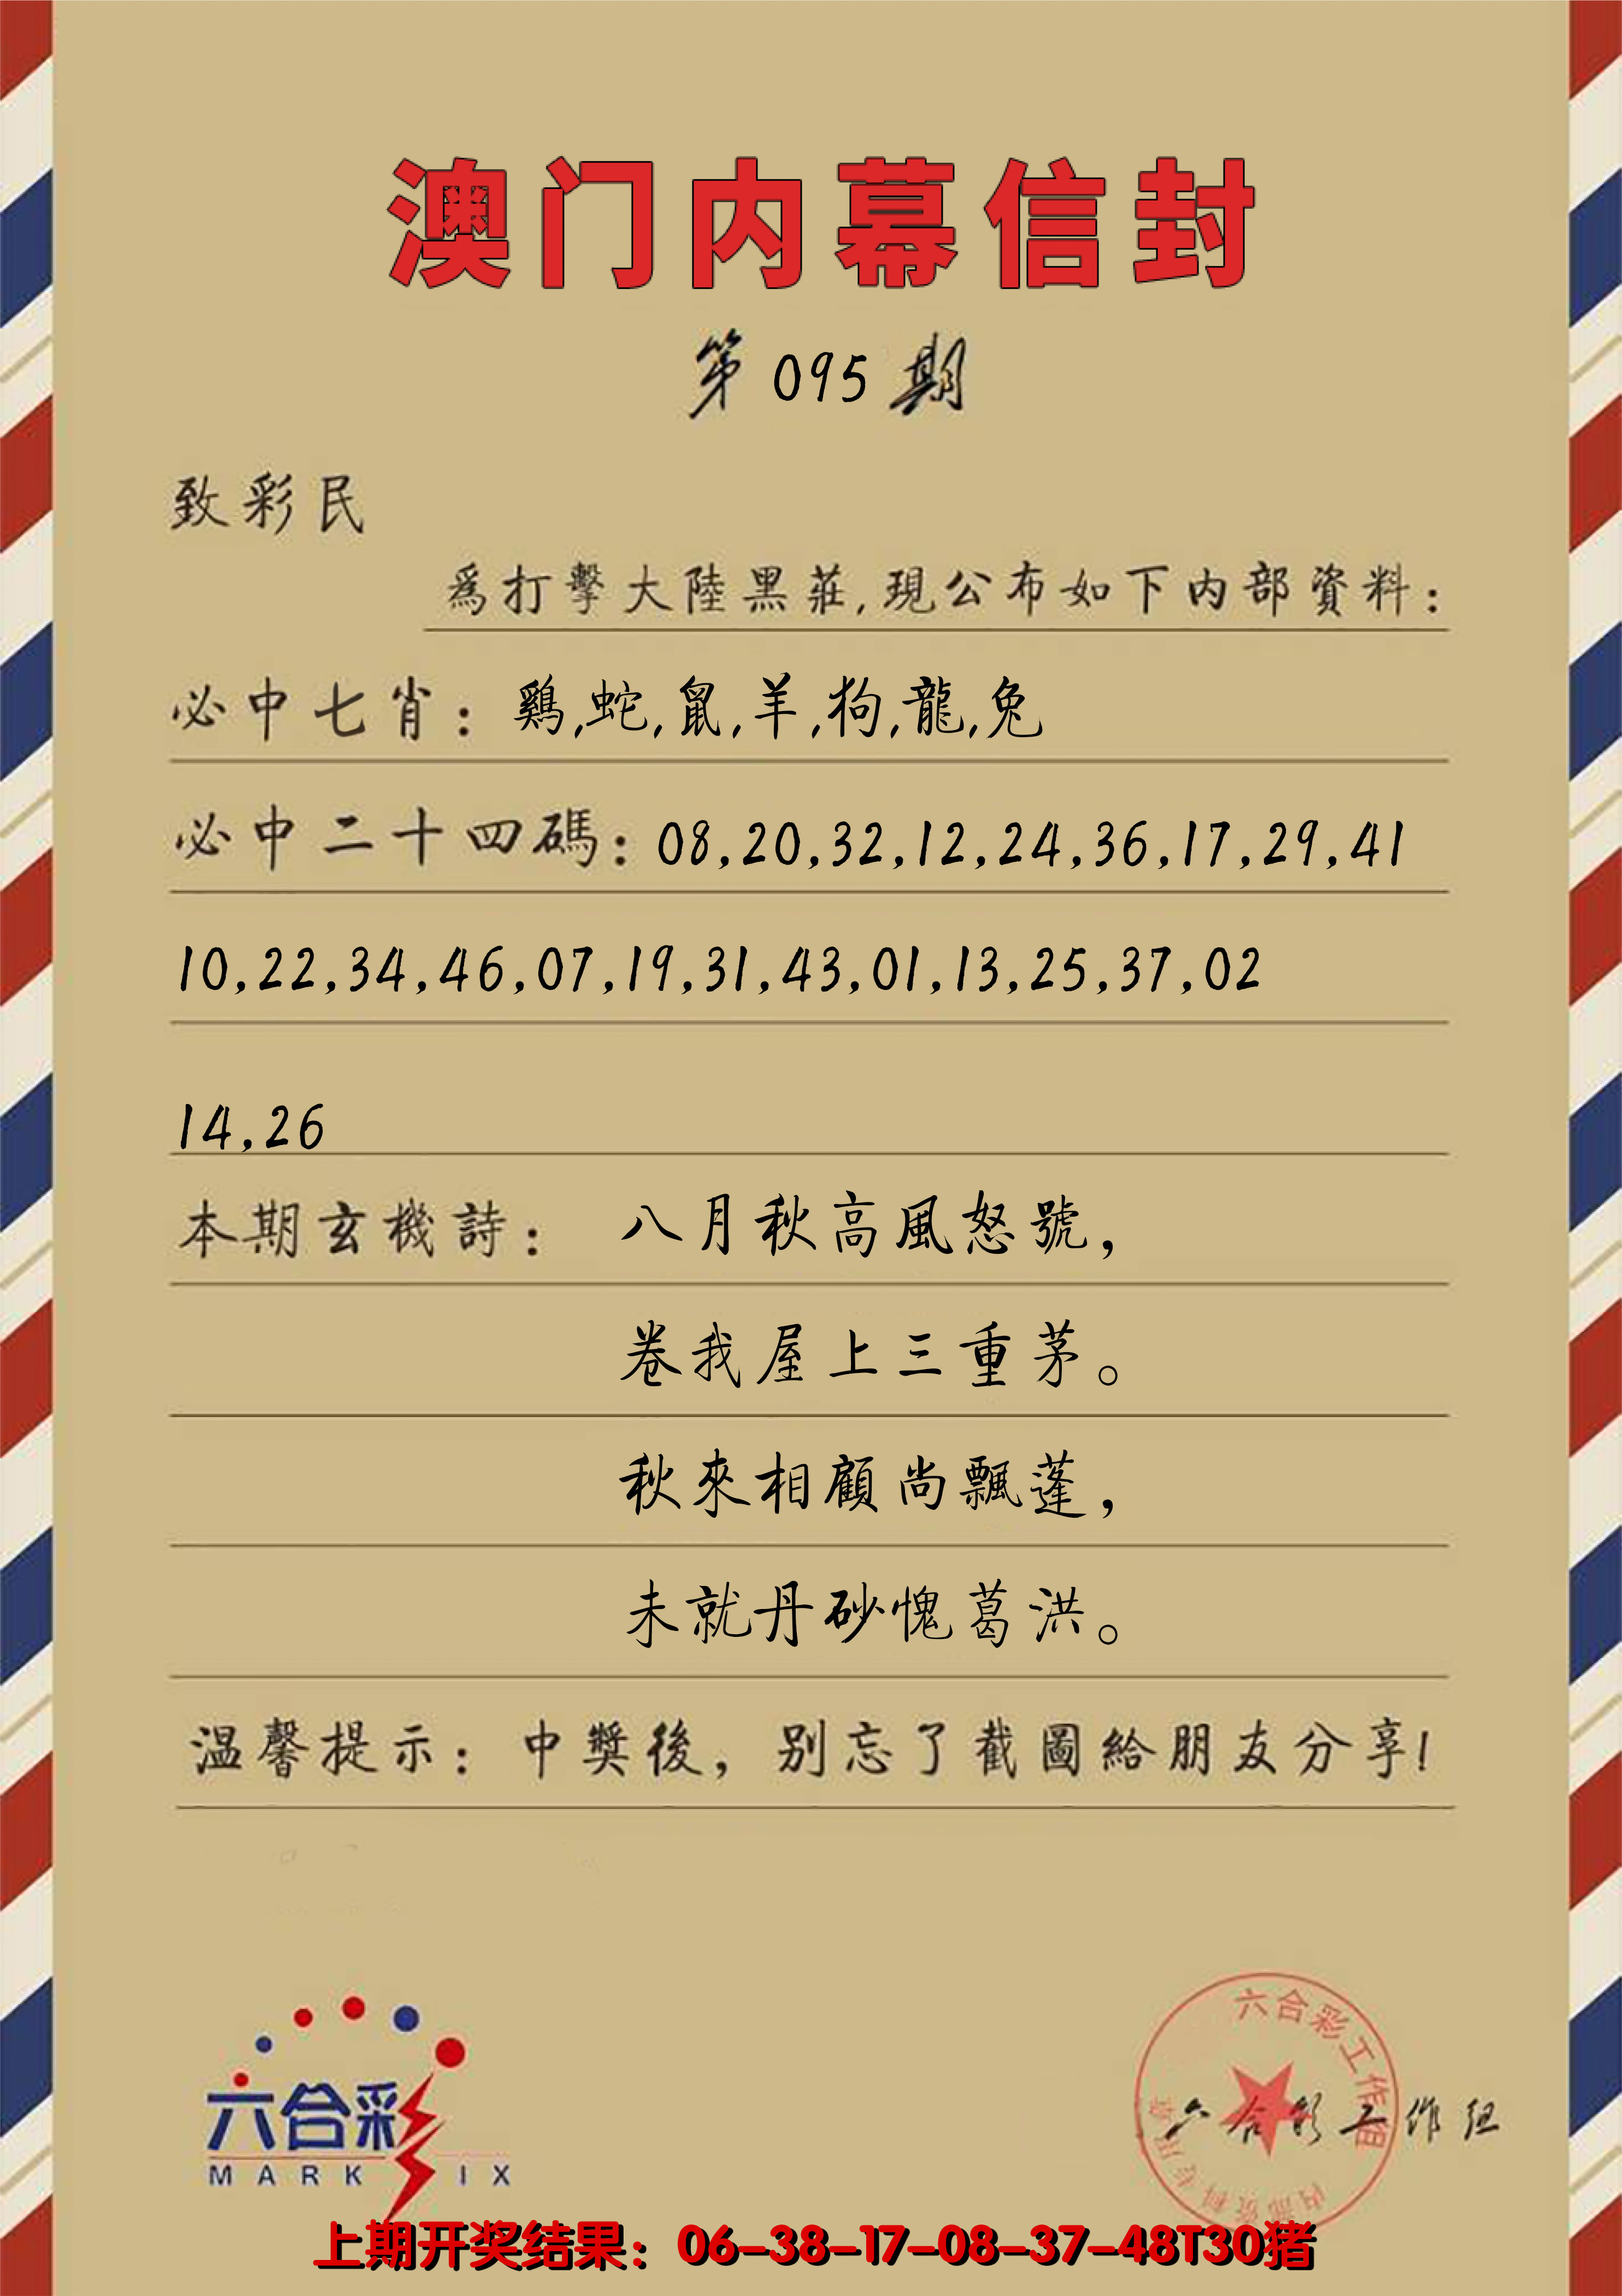 澳门内幕信封
第095期
致彩民
為打擊大陸黑莊,現公布如下内部資料：
必中七肖：鷄,蛇,鼠,羊,狗,龍,兔
必中二十四碼：08,20,32,12,24,36,17,29,41
10,22,34,46,07,19,31,43,01,13,25,37,02
14,26
本期玄機詩：八月秋高風怒號，
卷我屋上三重茅。
秋來相顧尚飄蓬，
未就丹砂愧葛洪。
温馨提示：中獎後，别忘了截圖給朋友分享！
六合彩工作组
内部资料专用章
六合彩工作组
六合彩
MARK SIX
上期开奖结果：06-38-17-08-37-48T30猪